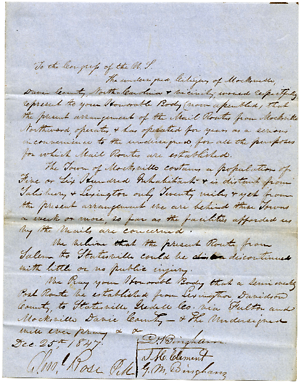 To the Congress of the U.S.
The undersigned Citizens of Mocksville
Davie County, North Carolina & vicinity would respectfully
represent to your Honorable Body (now assembled) that
the present arrangement of the Mail Route from Mocksville
Northward operates & has operated for years as a serious
inconvenience to the undersigned for all the purposes
for which Mail Routes are established.
The Town of Mocksville contains a population of
Five or Six Hundred Inhabitants & is distant from
Salisbury & Lexington only Twenty miles & yet from
the present arrangement we are behind those Towns
a week or more so far as the facilities afforded us
by the Mails are concerned.
We believe that the present Route from
Salem to Statesville could be discontinued
with little or no public injury.
We Pray your Honorable Body that a semi-weekly
Route be established from Lexington Davidson
County to Statesville Iredell Co. via Fulton and
Mocksville Davie County & the Undersigned
will ever pray &
Dec 25th 1847.
Rose P.M.
Bingham
Clement
G. M. Bingham